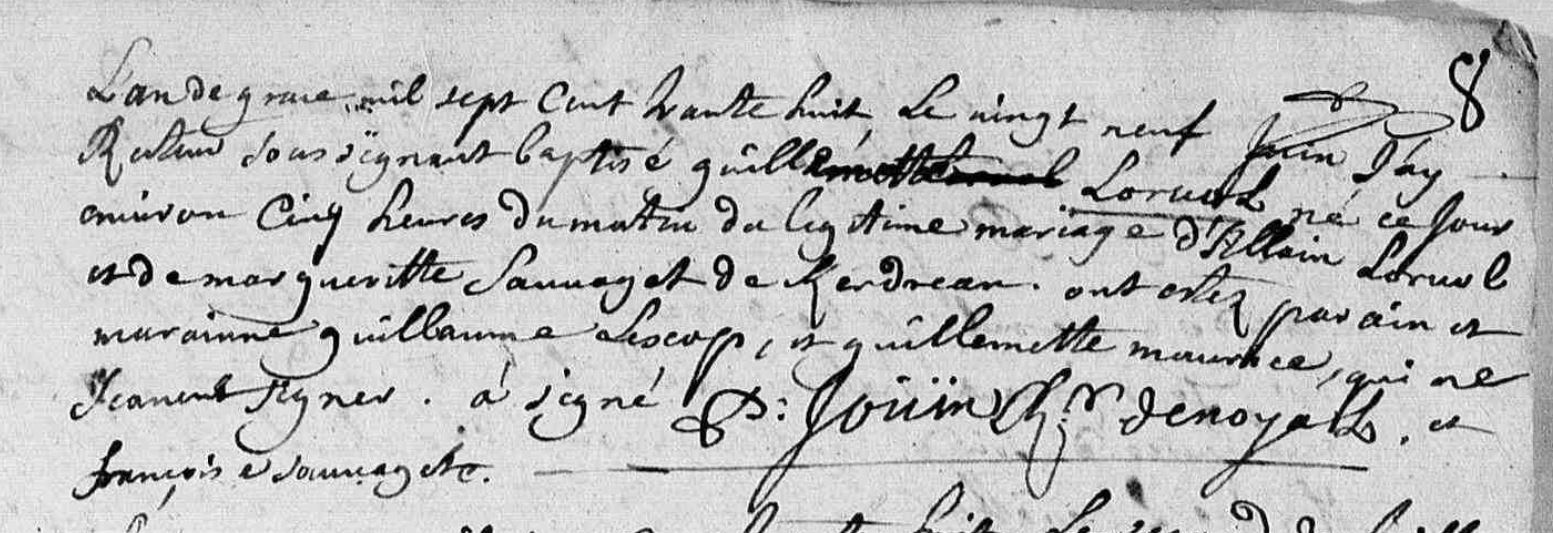 8
L'an de grace mil sept Cent trante huit, Le vingt neuf Juin J'ay
Recteur soussignant baptisé guillemette Lorvol né ce Jour
environ Cinq heures du matin du legitime mariage d'Allain Lorvol
et de margueritte Sauvaget de Kerdrean. ont estez parain et
maraine guillaume Lescop, et guillemette maurice, qui ne
scavent signer. á signé P: Joüin Rr de noyall. et
françoise sauvaget.